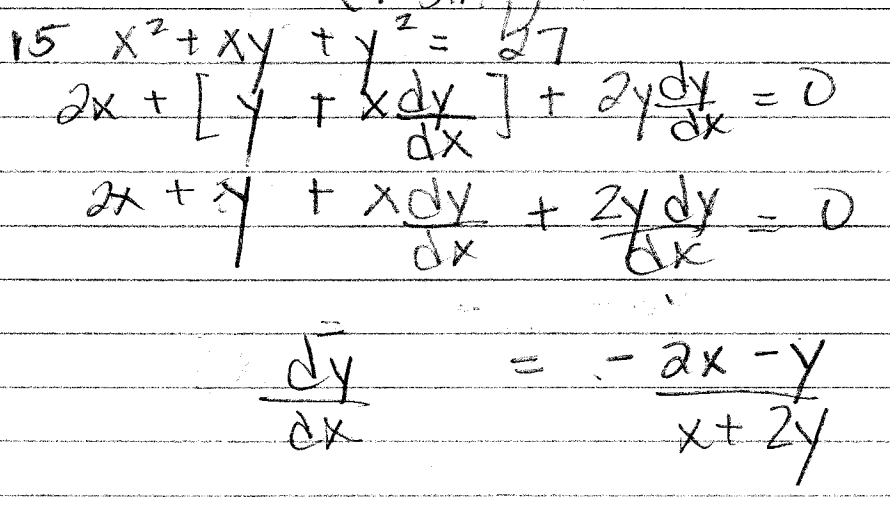 15 x² + xy + y² = 27
2x + [y + x dy/dx] + 2y dy/dx = 0
2x + y + x dy/dx + 2y dy/dx = 0
dy/dx = -2x - y / x + 2y